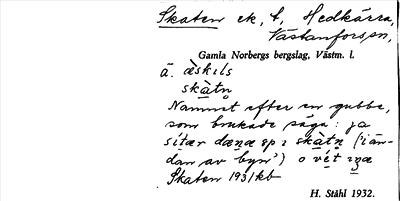 Skaten ek, t, Hedkärra,
Västanforssn,
Gamla Norbergs bergslag, Västm. l.
ä. æ̀skıls
skàtn̥
Namnet efter en gubbe,
som brukade säga: ja
sítær dæna sp ı skàtn̥ ('i än-
dan av byn') o vét ıŋæ
Skaten 1931 kb
H. Ståhl 1932.